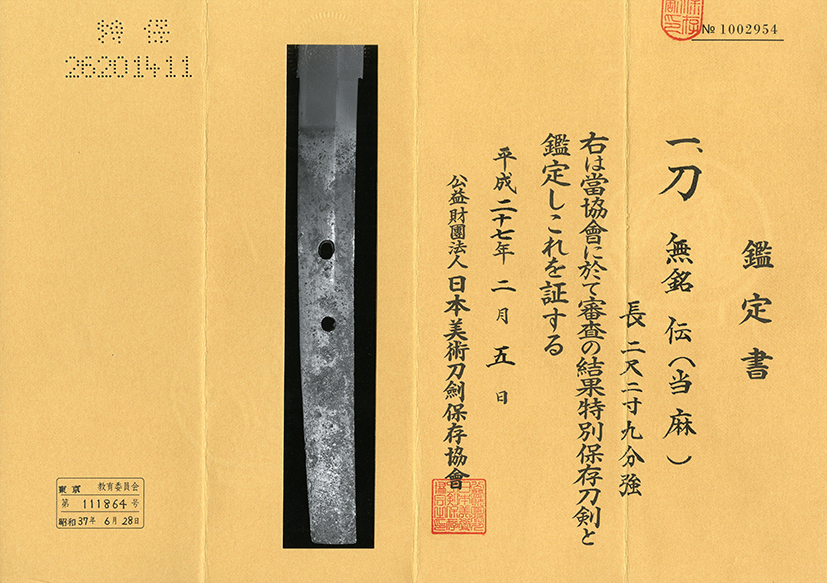 No 1002954
鑑定書
一、刀 無銘 伝(当麻)
長 二尺二寸九分強
右は當協會に於て審査の結果特別保存刀剣と
鑑定しこれを証する
平成二十七年二月五日
公益財團法人 日本美術刀劍保存協會
特保
26201411
東京 教育委員会
第 111864 号
昭和37年 6月 28日